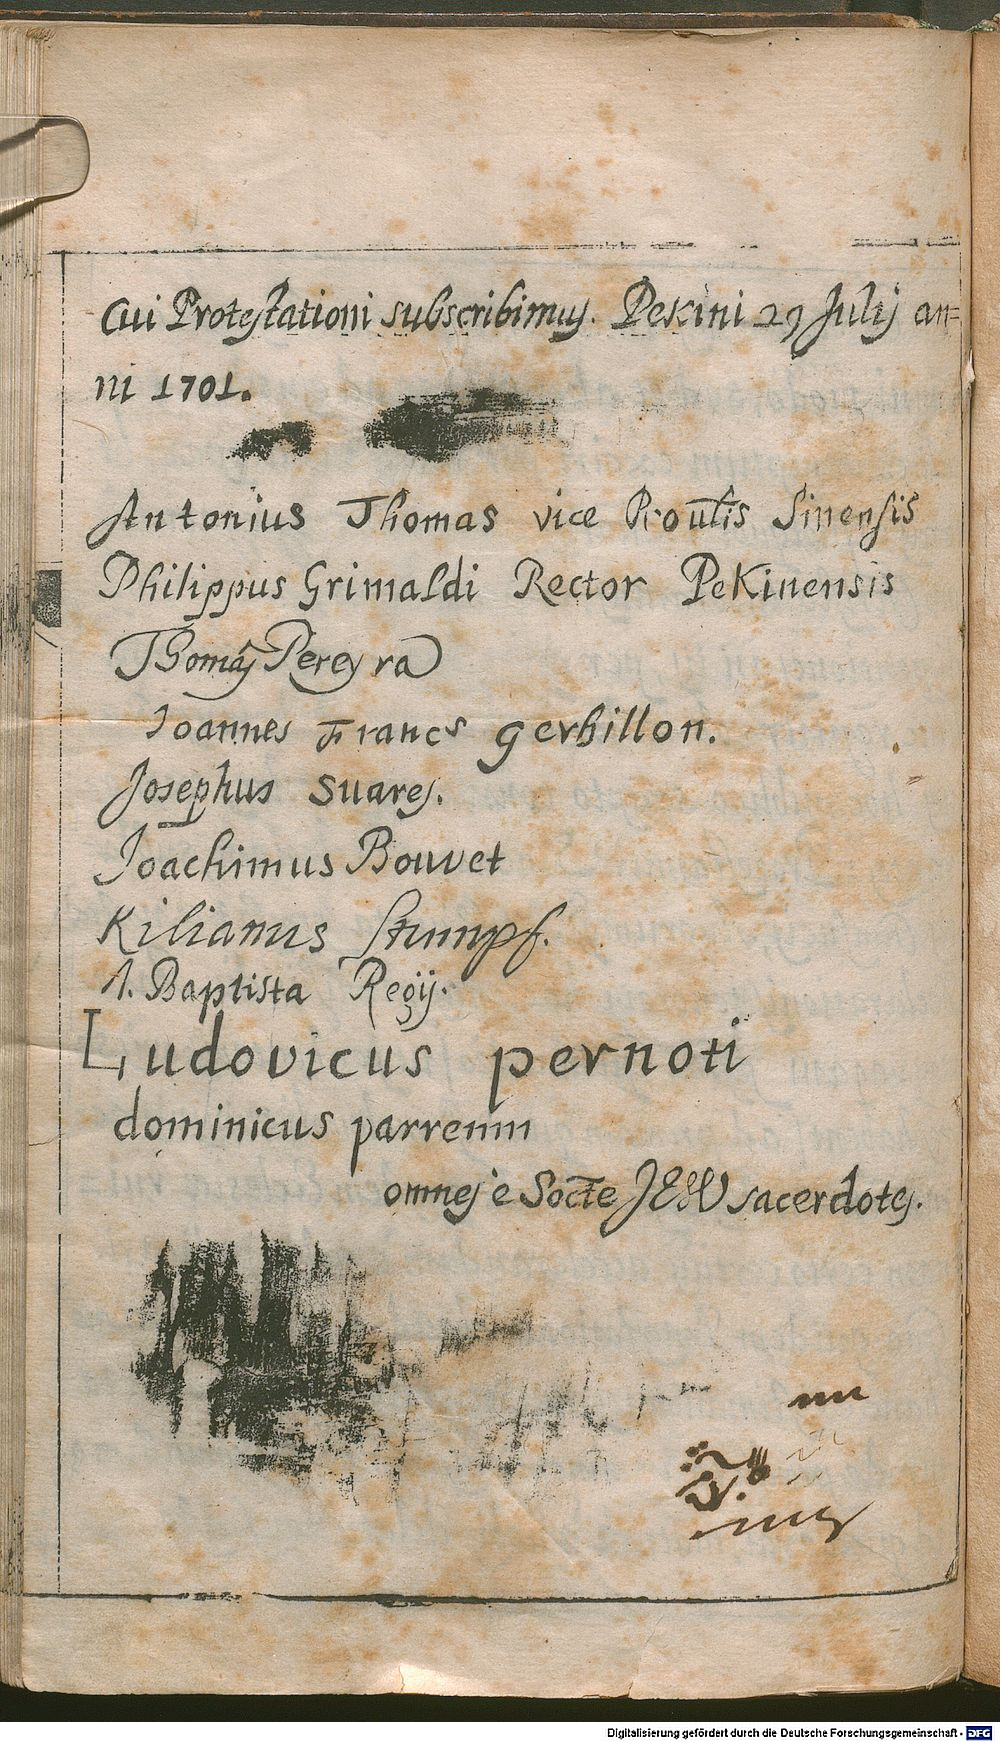 Cui Protestationi subscribimus. Pekini 29 Julij an=
ni 1701.
Antonius Thomas vice Proūlis Sinensis
Philippus Grimaldi Rector Pekinensis
Thomas Pereyra
Ioannes Francs gerbillon.
Josephus Suares.
Joachimus Bouvet
Kilianus Stumpf.
I. Baptista Regis.
Ludovicus pernoti
dominicus parrenin
omnes è Soctē JESU sacerdotes.
Digitalisierung gefördert durch die Deutsche Forschungsgemeinschaft - DFG